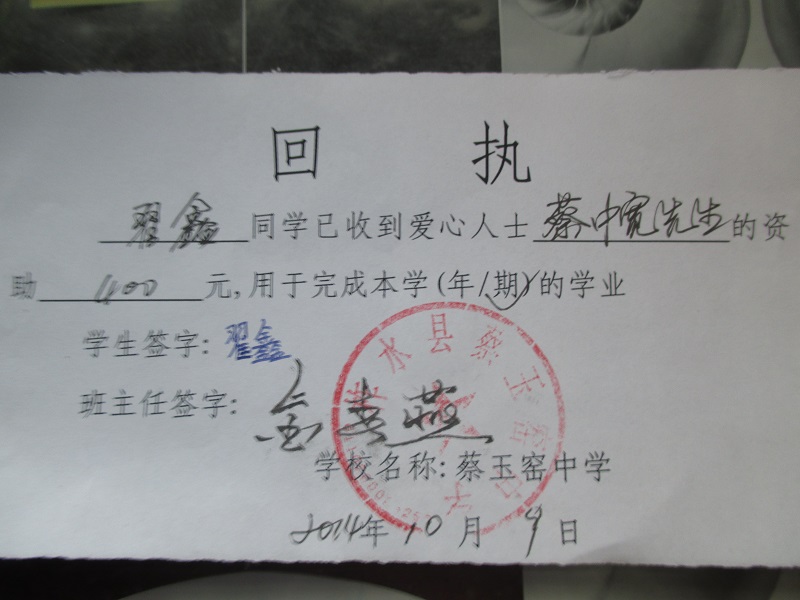 回 执
翟鑫同学已收到爱心人士蔡中宽先生的资
助 400 元,用于完成本学(年/期)的学业
学生签字: 翟鑫
班主任签字: 燕
水县蔡玉窑中学
学校名称: 蔡玉窑中学
2014年 10 月 9 日